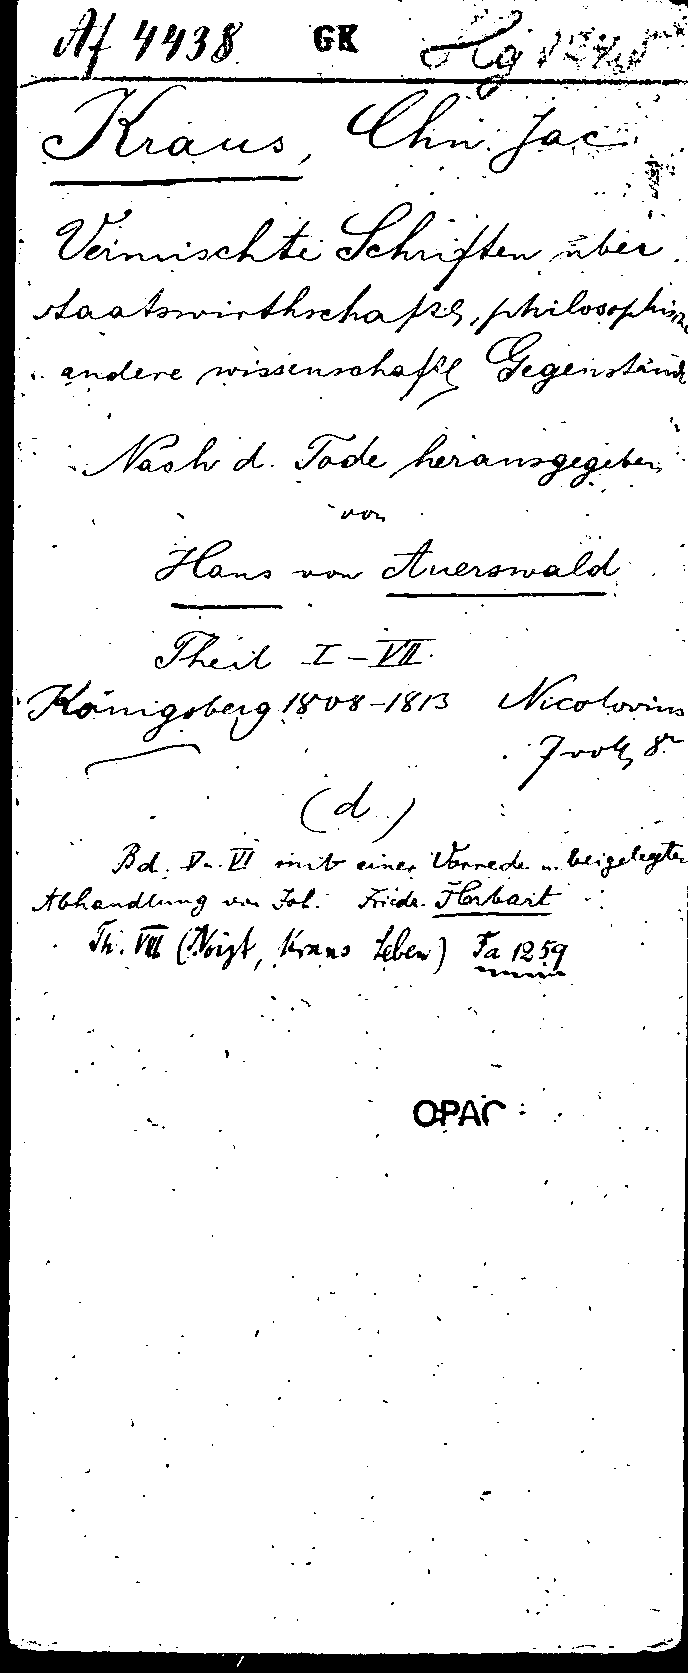 Af 4438 GK Hg
Kraus, Chn. Jac.
Vermischte Schriften über
staatswirthschaftl, philosophische
andere wissenschaftl Gegenstände
Nach d. Tode herausgegeben
von
Hans von Auerswald
Theil I-VII.
Königsberg 1808-1813 Nicolovius
7 voll, 8°
(d.)
Bd. V u. VI mit einer Vorrede u. beigelegter
Abhandlung von Joh. Friedr. Herbart
Th. VIII (Voigt, Kraus Leben) Fa 1259
OPAC